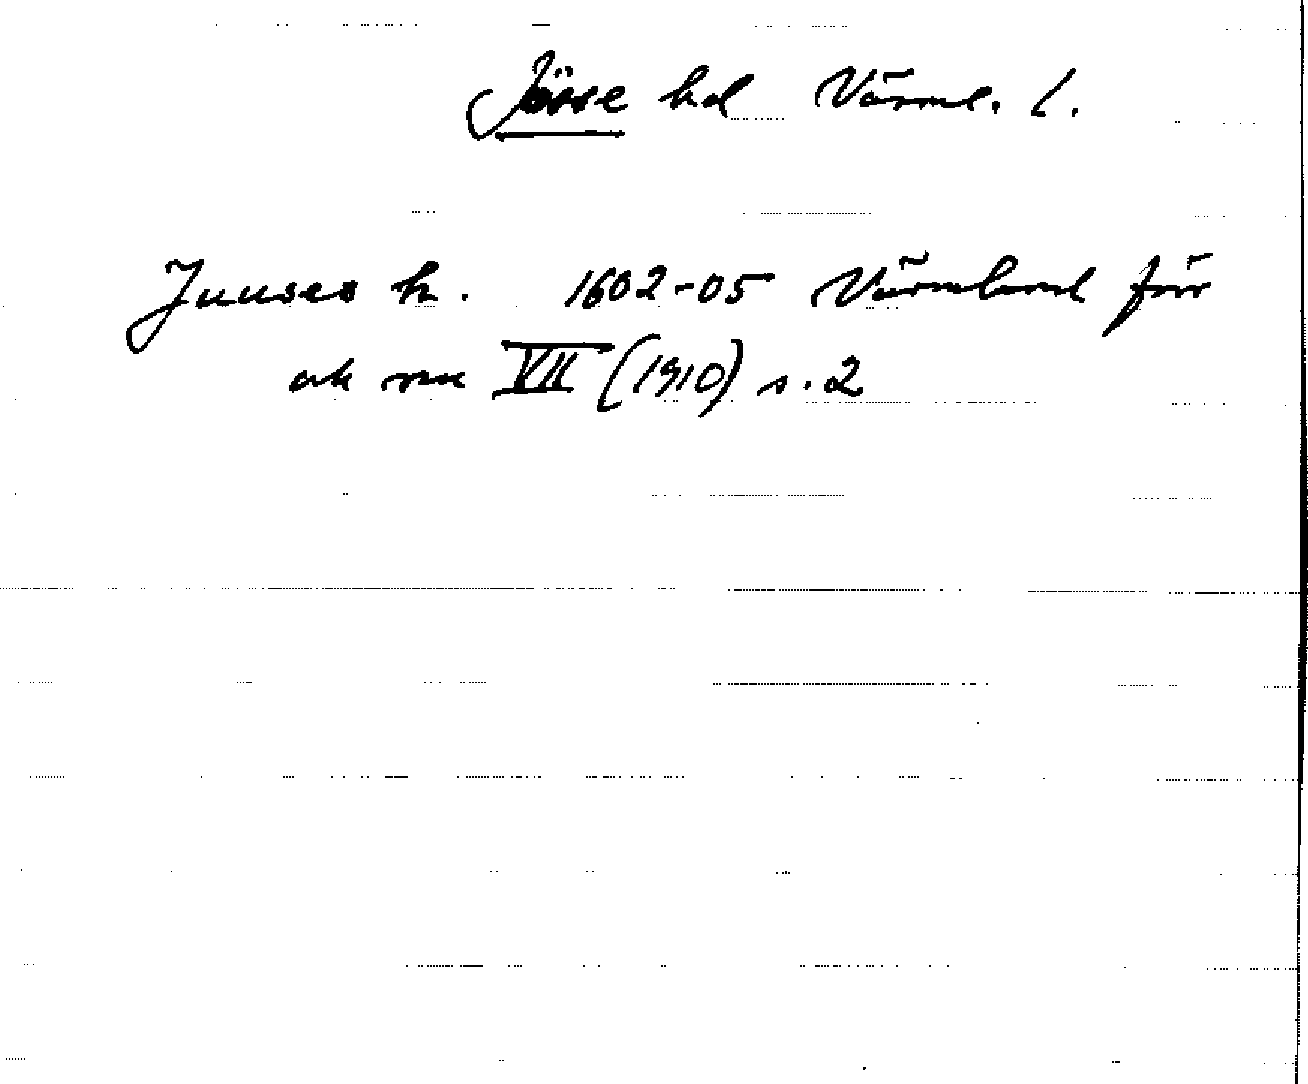 Jösse hd Värml. l.
Juuses h. 1602-05 Värmland förr
ok nu VII (1910) s. 2